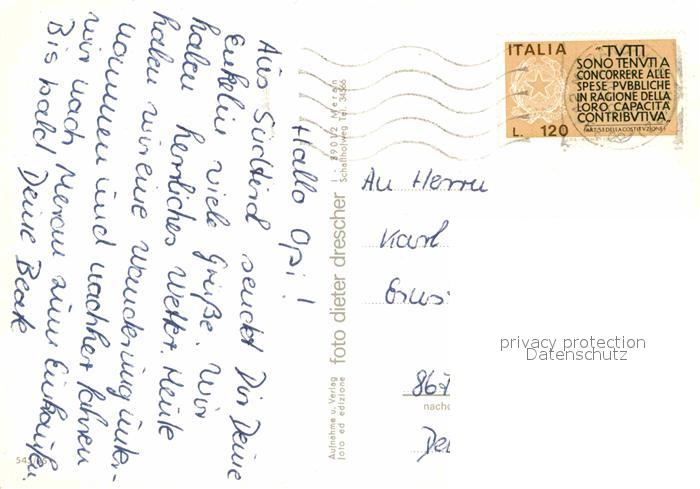 Hallo Opi!
Aus Südtirol sendet Dir Deine
Enkelin viele Grüße. Wir
haben herrliches Wetter. Heute
haben wir eine Wanderung unter-
nommen und nachher fahren
wir nach Meran zum Einkaufen.
Bis bald Deine Beate
Aufnahme u. Verlag
foto ed edizione
foto dieter drescher
I - 39012 Meran
Schaffholweg Tel. 34566
ITALIA
L. 120
"TVTTI
SONO TENVTI A
CONCORRERE ALLE
SPESE PVBBLICHE
IN RAGIONE DELLA
LORO CAPACITÀ
CONTRIBVTIVA."
(ART. 53 DELLA COSTITVZIONE)
An Herrn
Karl
privacy protection
Datenschutz
867